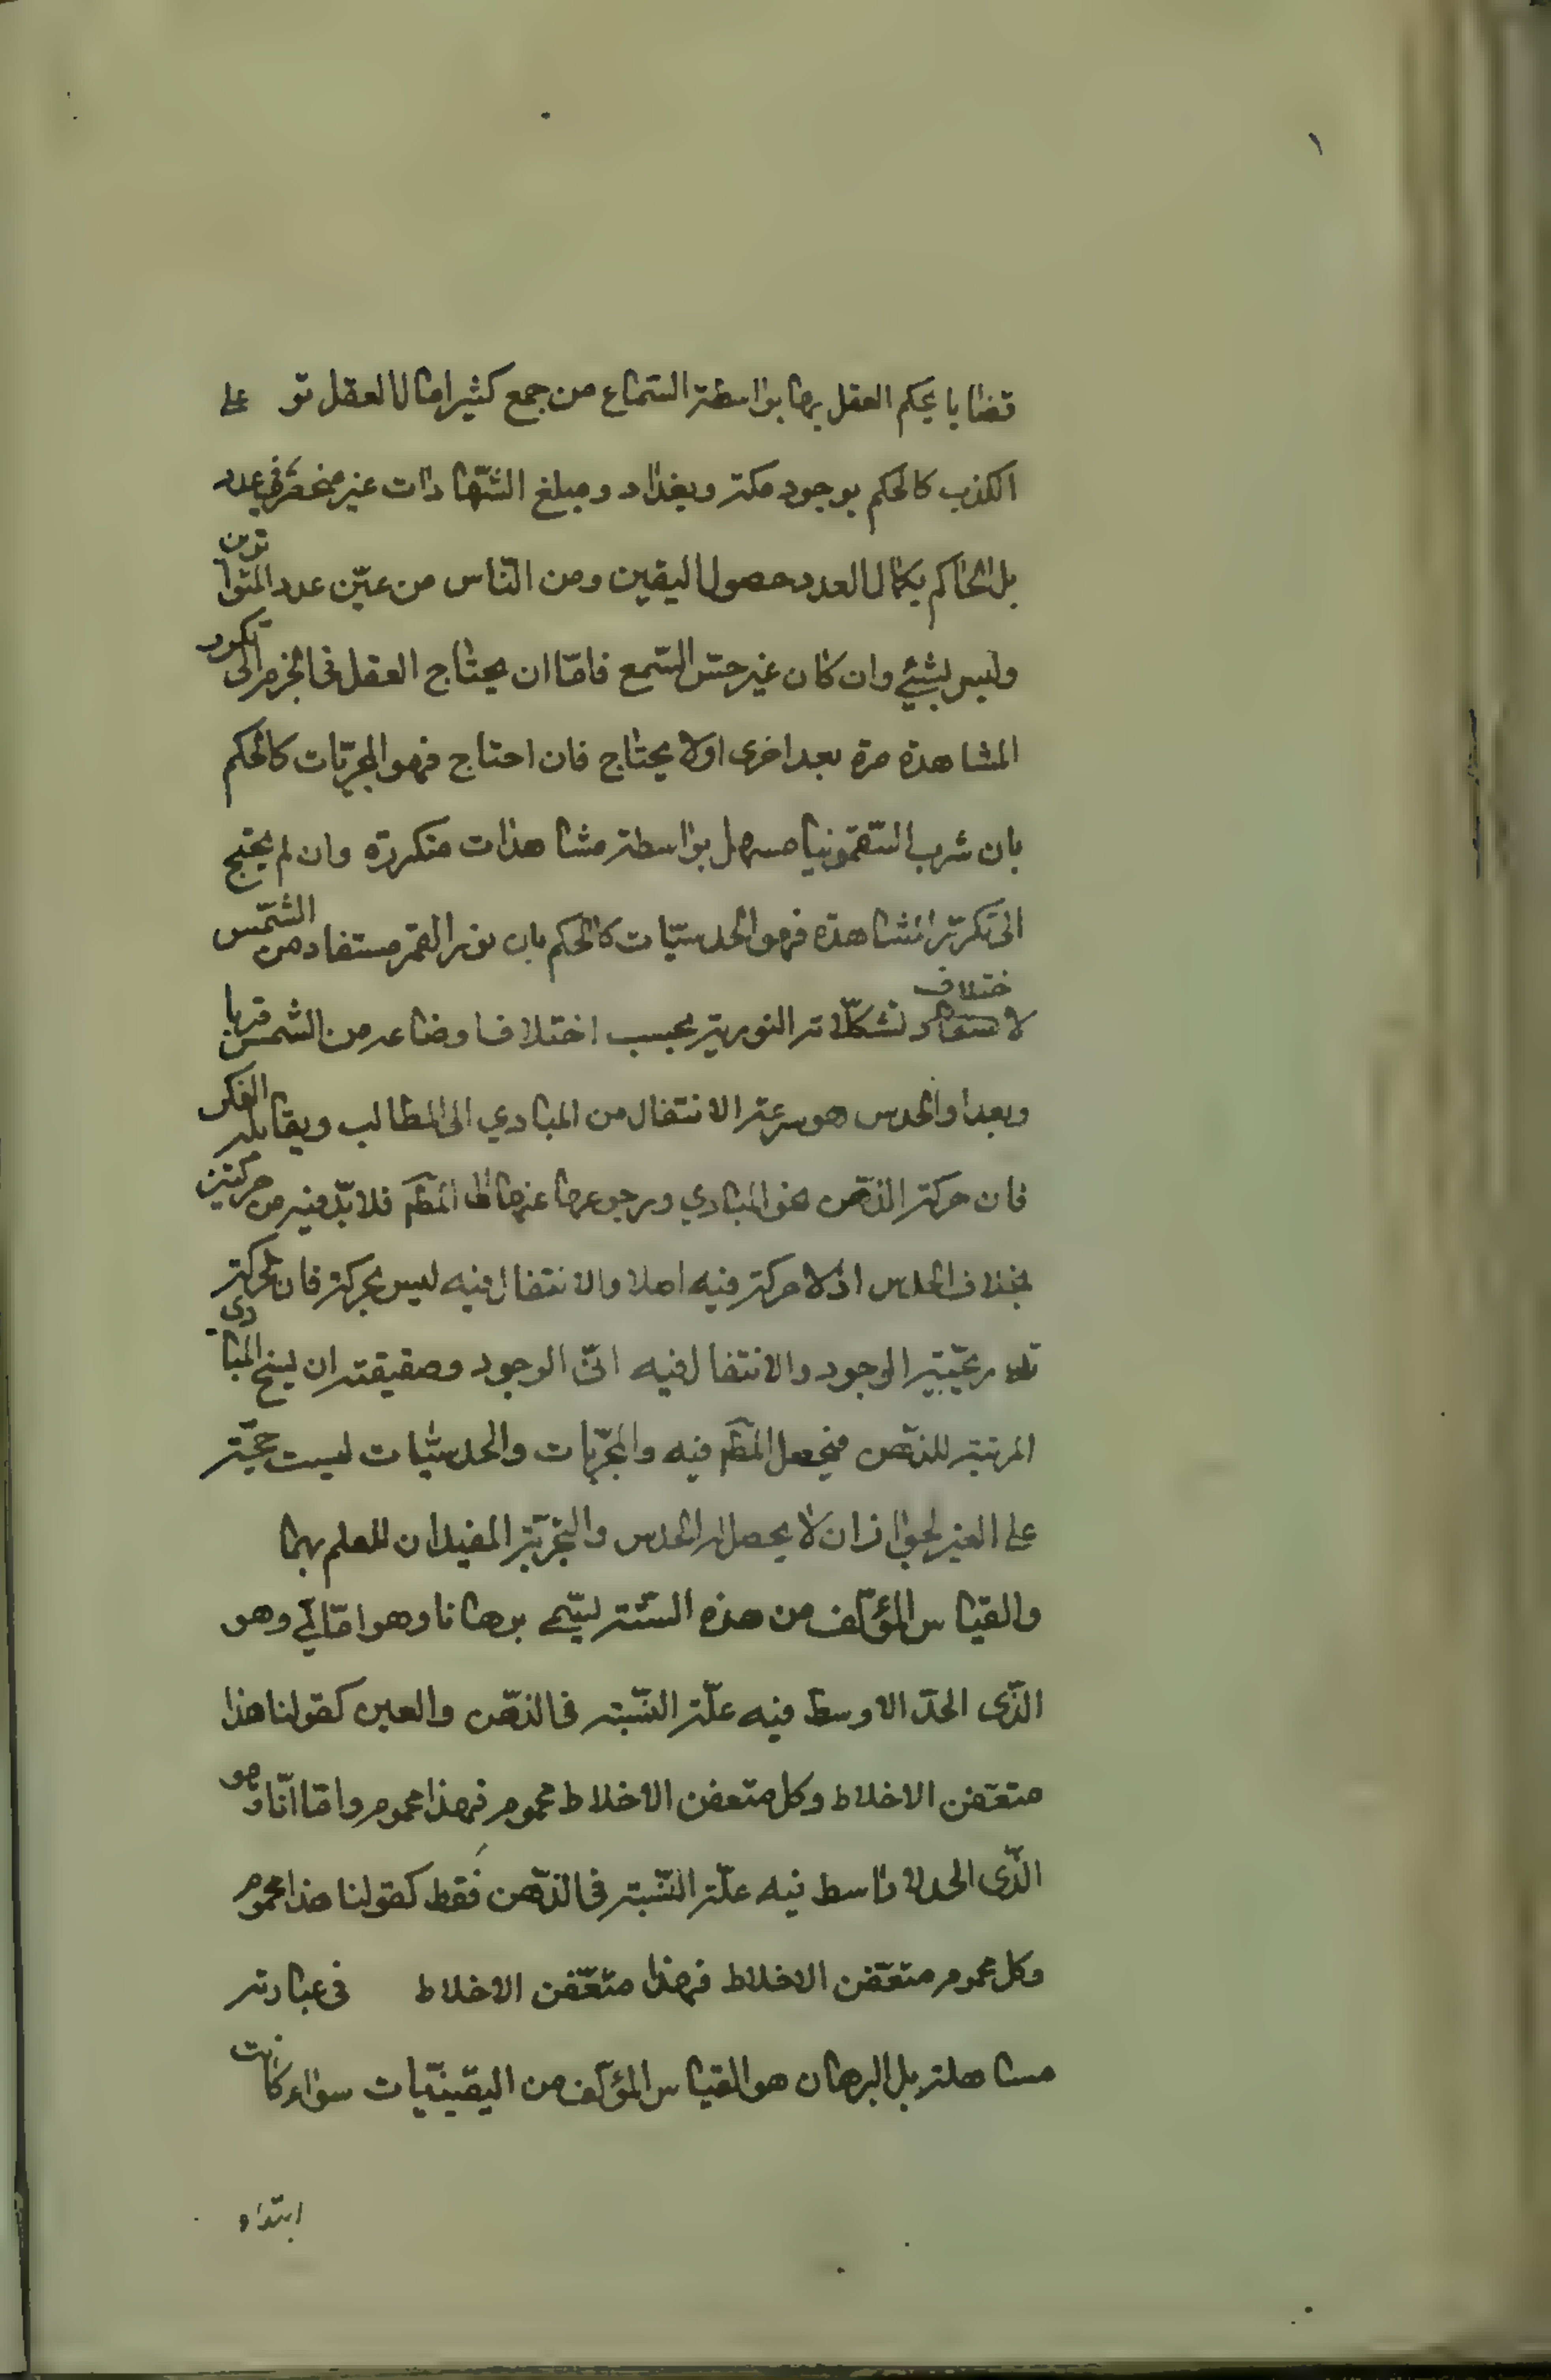 ١
قضايا يحكم العقل بها بواسطة السماع من جمع كثير احال العقل تو على
الكذب كالحكم بوجود مكة وبغداد ومبلغ الشهادات غير منحصر في عدد
بل الحاكم بكمال العدد حصول اليقين ومن الناس من عيّن عدد المتواترين
وليس بشيئ وان كان غير حسّ السّمع فامّا ان يحتاج العقل في الجزم الى تكرر
المشاهدة مرة بعد اخرى اولا يحتاج فان احتاج فهو المجرّبات كالحكم
بان شرب السّقمونيا مسهل بواسطة مشاهدات متكررة وان لم يحتج
الى تكرير المشاهدة فهو الحدسيّات كالحكم بان نور القمر مستفاد من الشمس
لاختلاف تشكّلاته النورية بحسب اختلاف اوضاعه من الشمس قربا
وبعدا والحدس هو سرعة الانتقال من المبادي الى المطالب ويقابله الفكر
فان حركة الذهن نحو المبادي ورجوعها عنها الى المط فلا بدّ فيه من حركتين
بخلاف الحدس اذ لا حركة فيه اصلا والانتقال فيه ليس بحركة فان الحركة
تدريجيّة الوجود والانتقال فيه انّى الوجود وحقيقته ان يسنح المبادى
المرتبة للذهن فيحصل المط فيه والمجرّبات والحدسيّات ليست حجّة
على الغير لجواز ان لا يحصل له الحدس والتجربة المفيدان للعلم بهما
والقياس المؤلف من هذه الستّة يسّمى برهانا وهو امّا لمّي وهو
الذّى الحدّ الاوسط فيه علّة النّسبة في الذهن والعين كقولنا هذا
متعفّن الاخلاط وكل متعفن الاخلاط محموم فهذا محموم واما انّا وهو
الذّى الحد الاوسط فيه علّة النّسبة في الذهن فقط كقولنا هذا محموم
وكل محموم متعفن الاخلاط فهذا متعفّن الاخلاط في عبارته
مساهلة بل البرهان هو القياس المؤلف من اليقينيّات سواء كانت
ابتداء